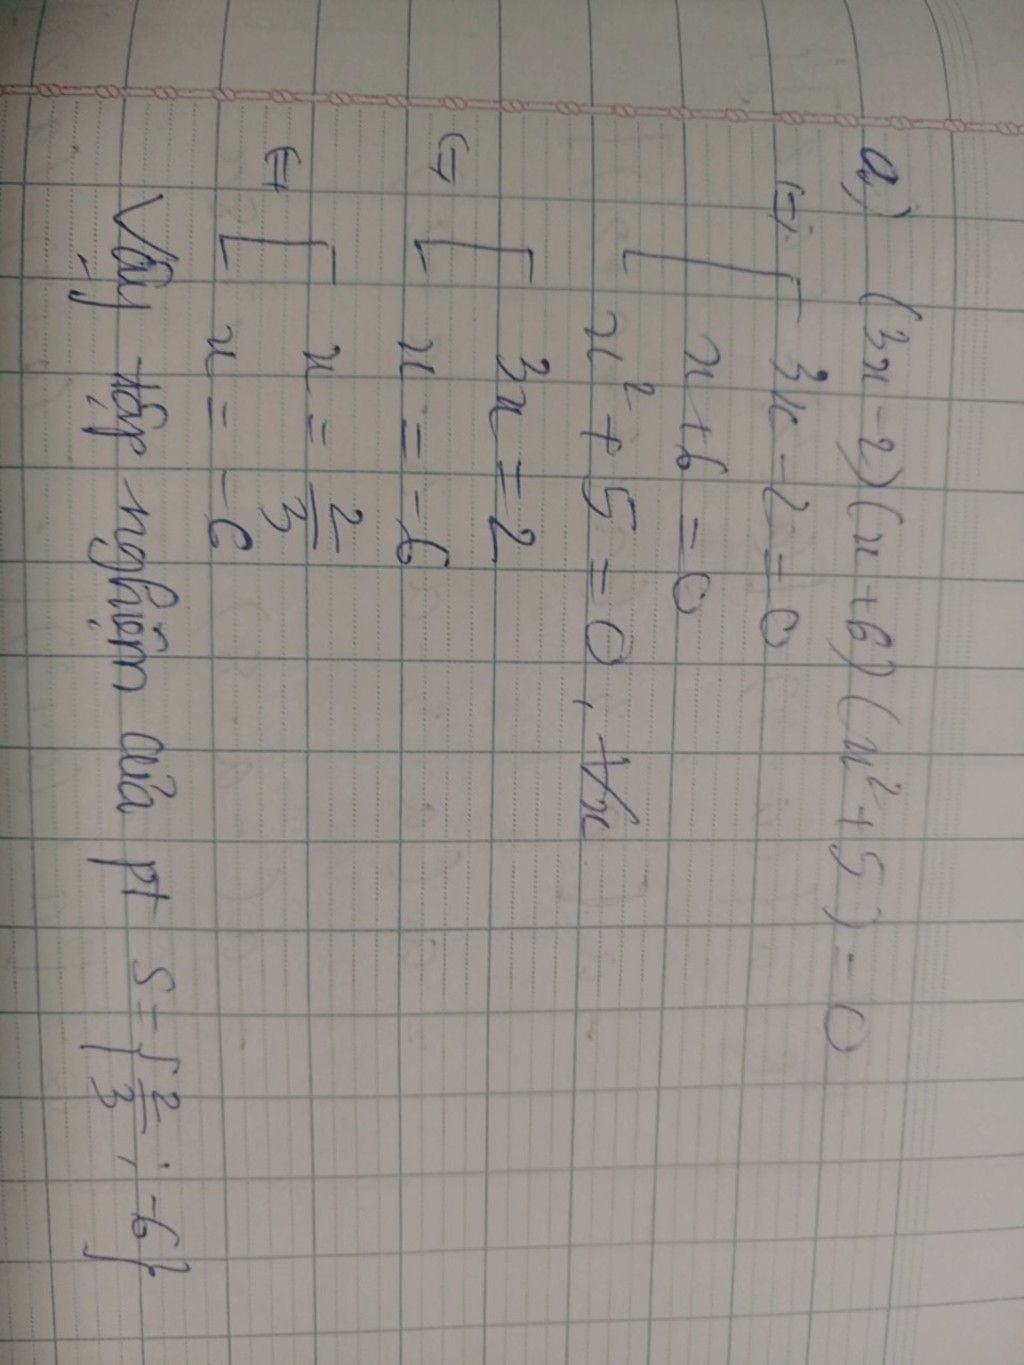 a) (3x-2)(x+6)(x²+5)=0
(=) [ 3x-2=0
x+6=0
x²+5=0, ∀x
(=) [ 3x=2
x=-6
(=) [ x=2/3
x=-6
Vậy tập nghiệm của pt S={2/3; -6}